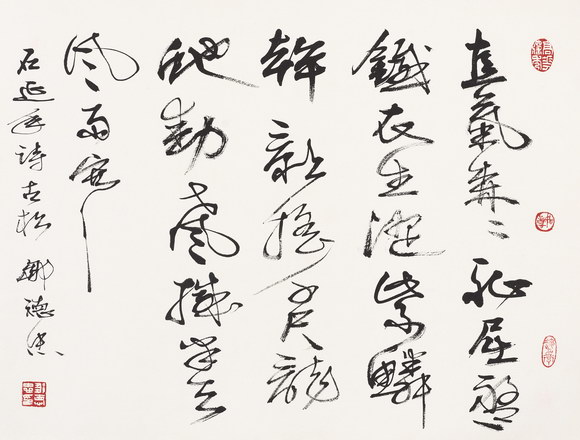 直氣森森耻屈盤
鐵衣生澀紫鱗
幹影搖千尺龍
蛇動聲撼半天
風雨寒
石延年詩古松 鄒德忠